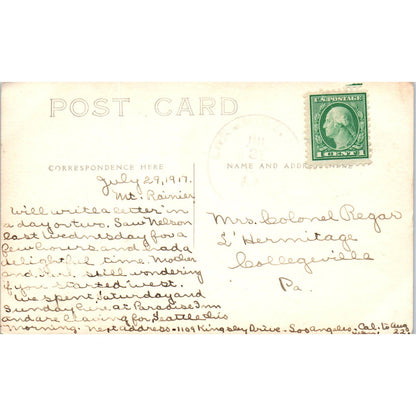 POST CARD
U.S. POSTAGE
1 CENT 1
CORRESPONDENCE HERE
NAME AND ADDRESS HERE
July 29, 1917.
Mt. Rainier
Will write a letter in
a day or two. Saw Nelson
last Wednesday for a
few hours and had a
delightful time. Mother
and still wondering
if you started west.
We spent Saturday and
Sunday here at Paradise Inn
and are leaving for Seattle this
morning. Next address - 1109 Kingsley Drive - Los Angeles - Cal. to Aug
22
Mrs. Colonel Regar
L' Hermitage
Collegeville
Pa.